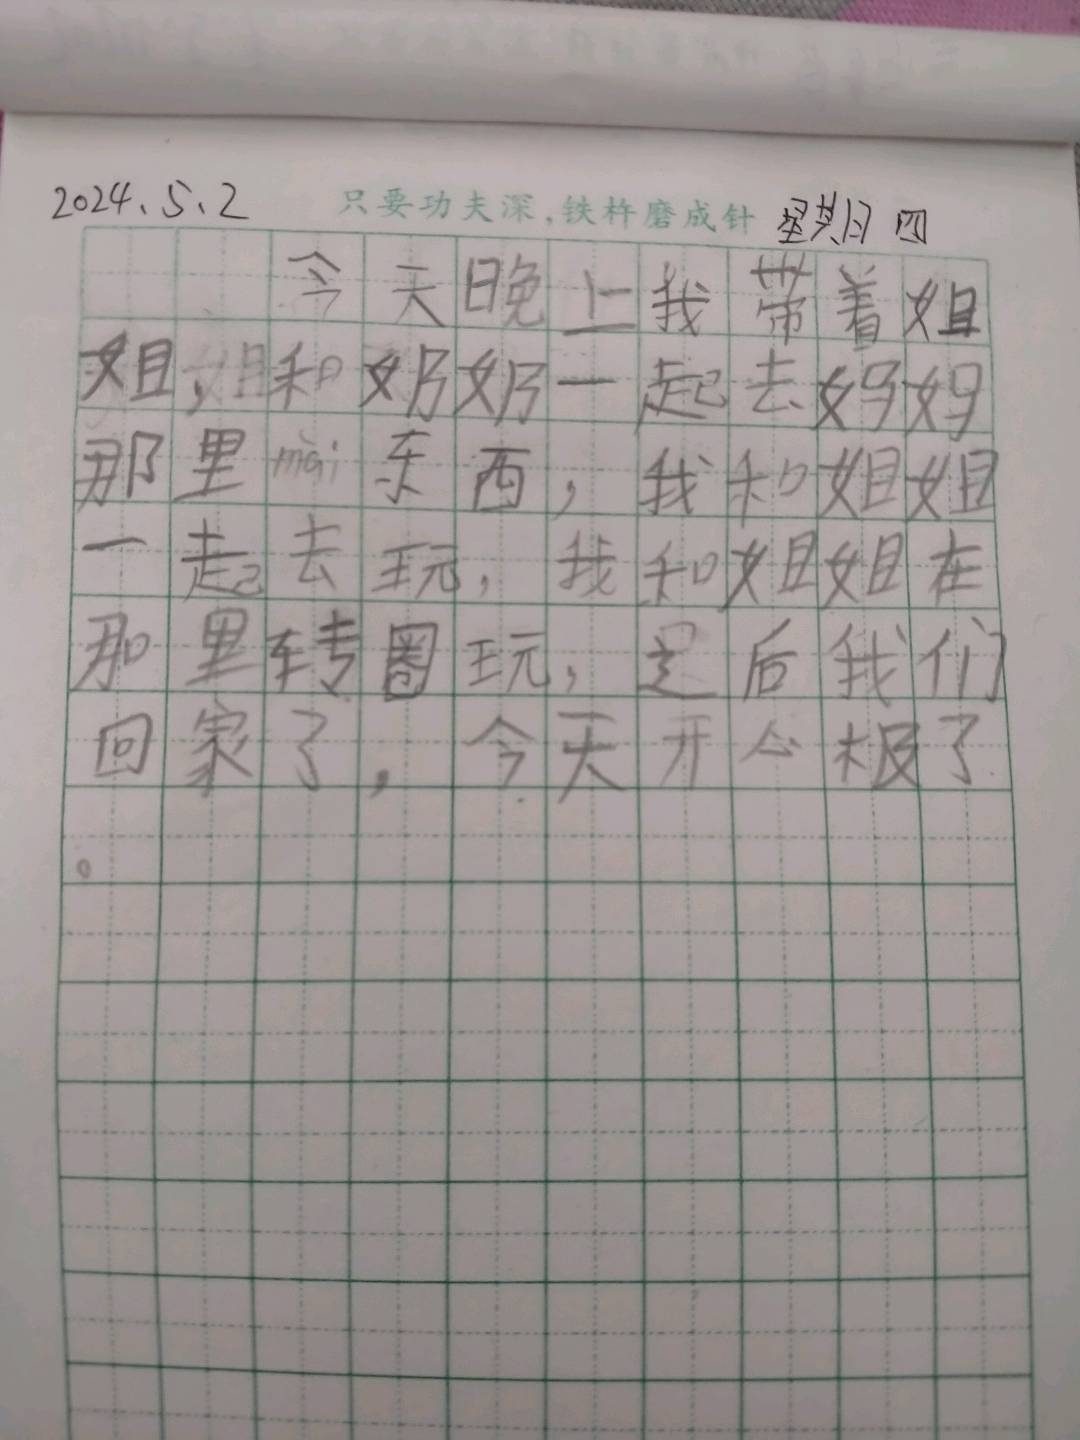 2024.5.2 只要功夫深,铁杵磨成针 星期日 四
今天晚上我带着姐
姐,和奶奶一起去妈妈
那里mǎi东西,我和姐姐
一起去玩,我和姐姐在
那里转圈玩,是后我们
回家了,今天开心极了
。